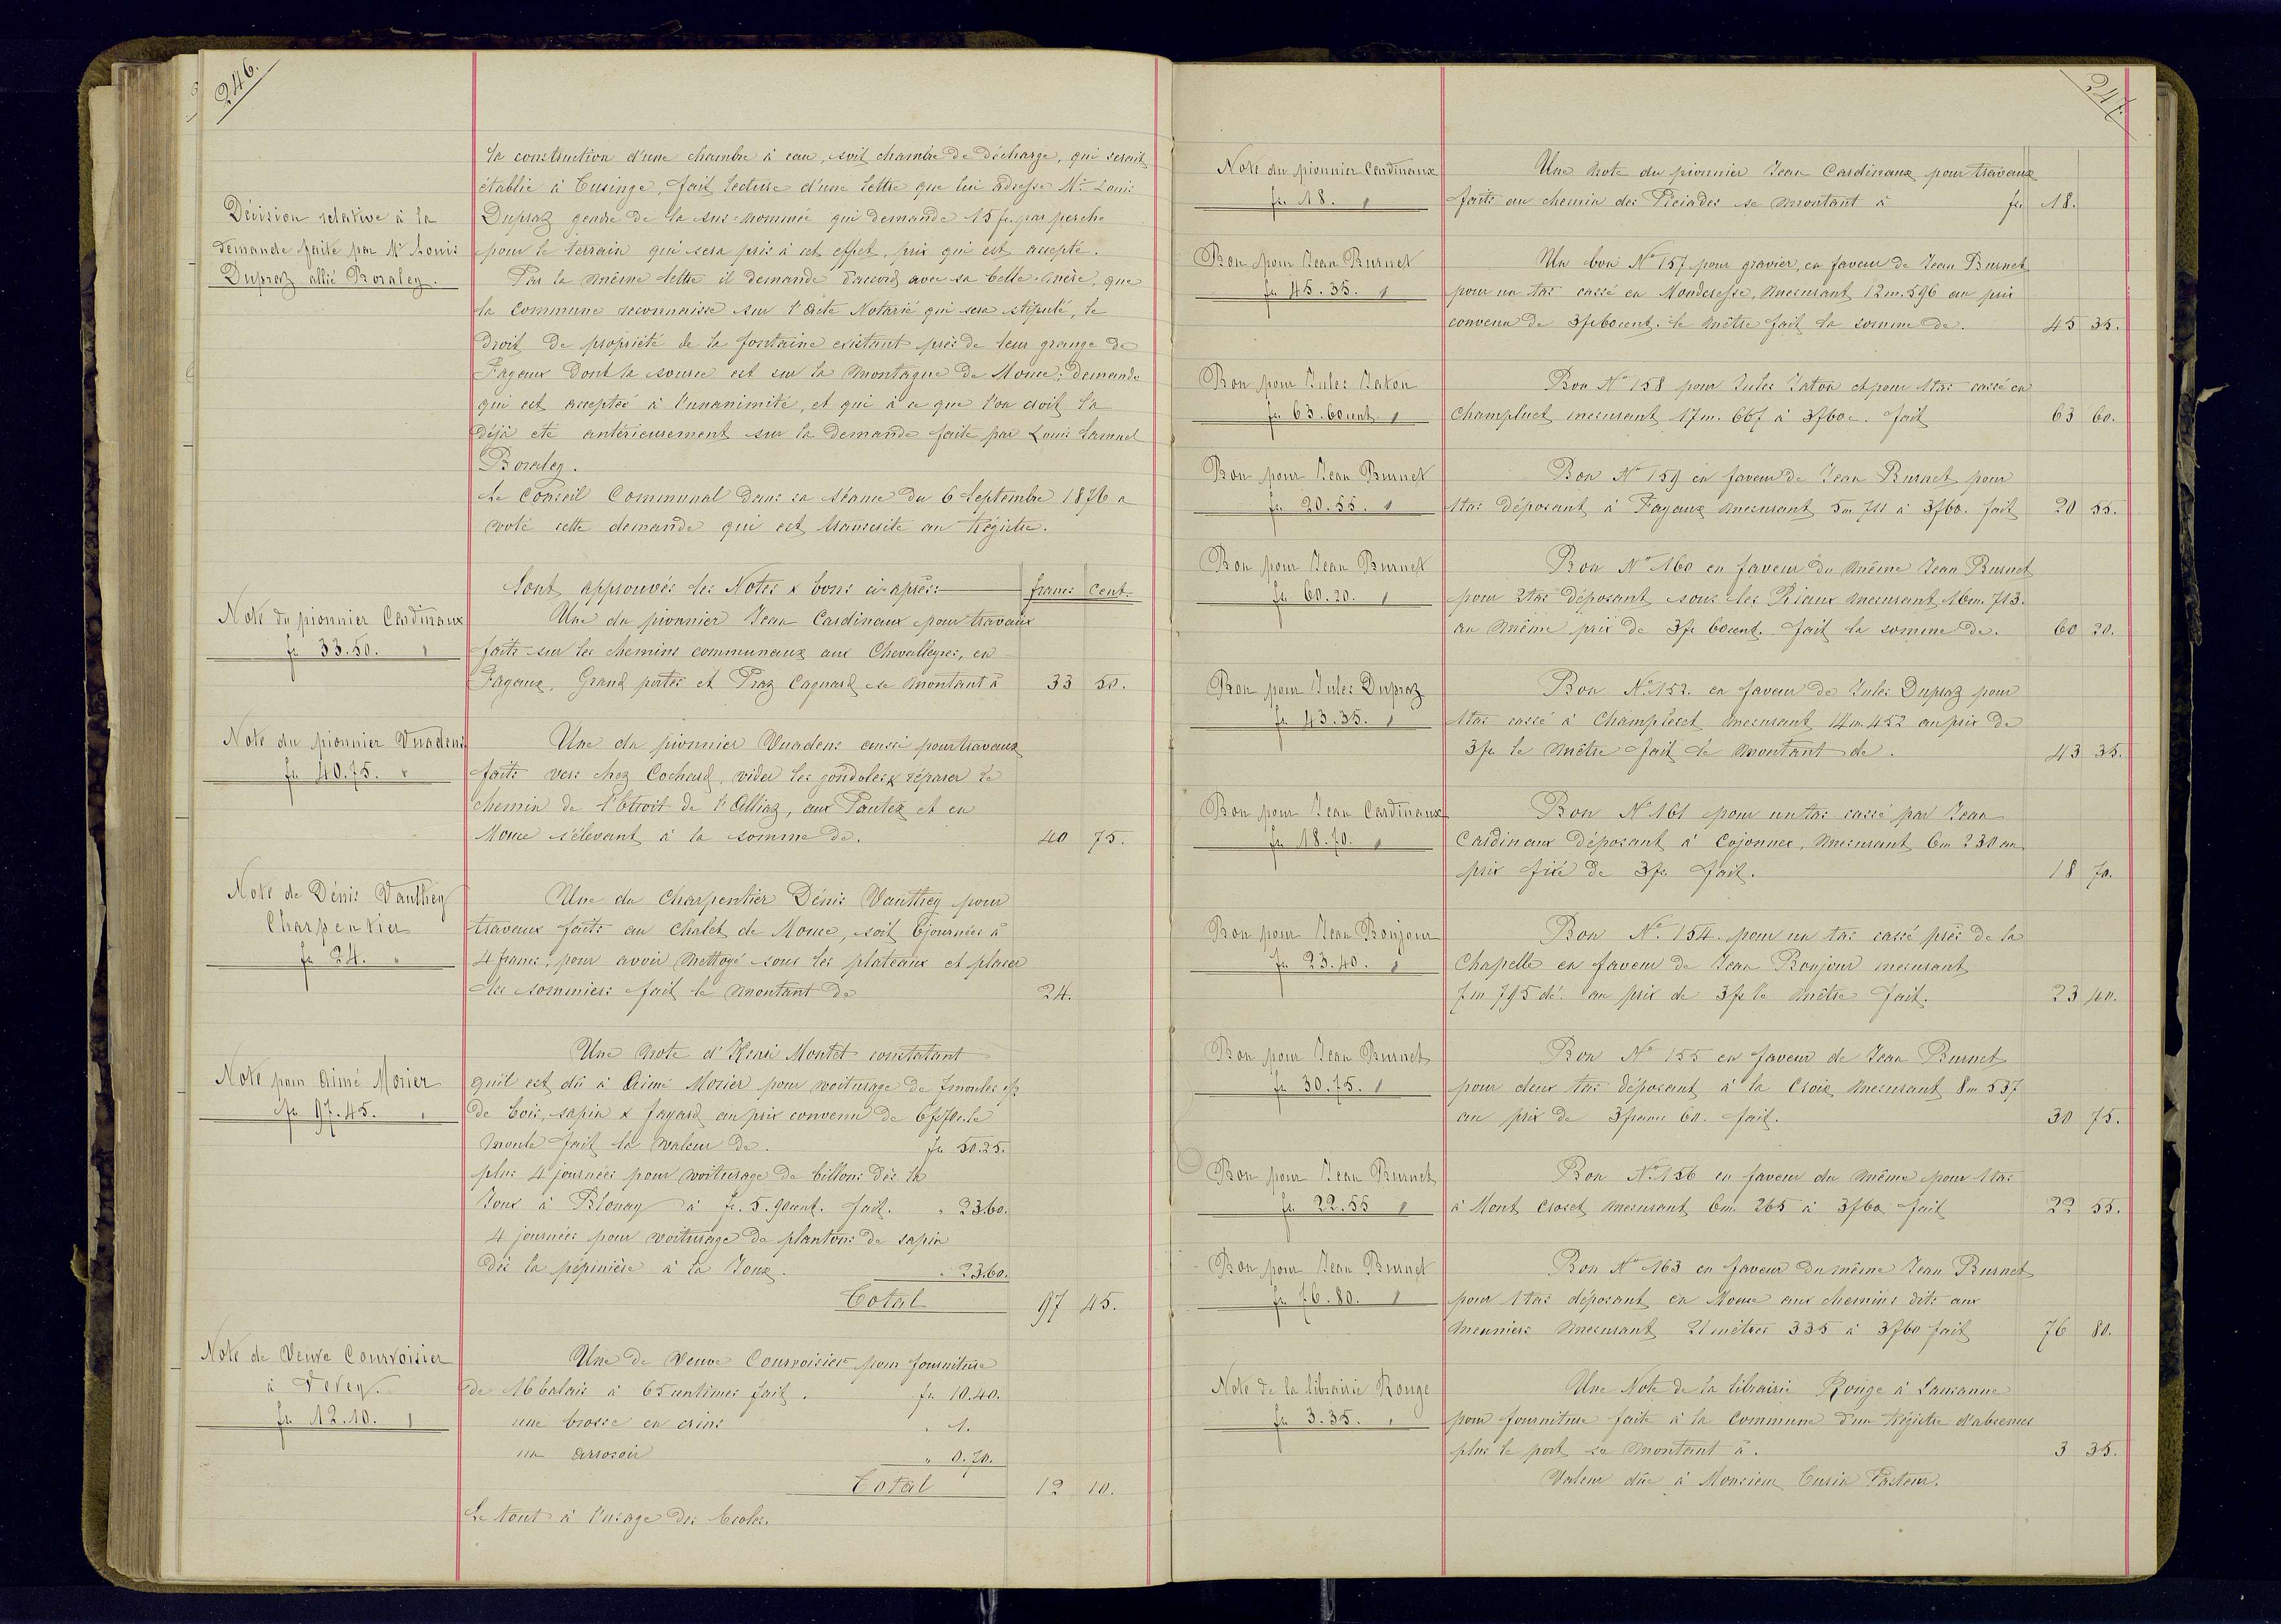 246.
la construction d'une chambre à eau, soit chambre de décharge, qui serait
établie à Cusinge, fait lecture d'une lettre que lui adresse Mr. Louis
Dupraz gendre de la sus-nommée qui demande 15 fr. par perche
pour le terrain qui sera pris à cet effet, prix qui est accepté.
Décision relative à la
demande faite par Mr Louis
Dupraz allié Boraley.
Par la même lettre il demande d'accord avec sa belle-mère, que
la Commune reconnaisse sur l'Acte Notarié qui sera stipulé, le
droit de propriété de la fontaine existant près de leur grange de
Fayaux dont la source est sur la Montagne de Mouce; demande
qui est acceptée à l'unanimité, et qui à ce que l'on croit l'a
déjà été antérieurement sur la demande faite par Louis Samuel
Boraley.
Le Conseil Communal dans sa séance du 6 Septembre 1876 a
voté cette demande qui est transcrite au Régistre.
Sont approuvés les Notes & bons ci-après: francs Cent.
Note du pionnier Cardinaux
fr 33.50. "
Une du pionnier Jean Cardinaux pour travaux
faits sur les chemins communaux aux Chevalleyres, en
Fayaux, Grand portes et Praz Cagnard se montant à 33 50.
Note du pionnier Vuadens
fr 40.75. "
Une du pionnier Vuadens aussi pour travaux
faits vers chez Cochard, vider les gondoles & réparer le
chemin de l'Etroit de l'Alliaz, aux Pautex et en
Mouce s'élevant à la somme de. 40 75.
Note de Dénis Vauthey
Charpentier
fr 24. "
Une du Charpentier Dénis Vauthey pour
travaux faits au Chalet de Mouce, soit 6 journées à
4 francs, pour avoir nettoyé sous les plateaux et placer
des sommiers fait le montant de 24.
Note pour Aimé Morier
fr 97.45. "
Une note d'Henri Montet constatant
qu'il est dû à Aimé Morier pour voiturage de 7 moules 1/2
de bois, sapin & fayard au prix convenu de 6 f 70 c. le
moule fait la valeur de. fr 50.25.
plus 4 journées pour voiturage de billons dès la
Joux à Blonay à fr. 5.90 cent. fait. " 23.60.
4 journées pour voiturage de plantons de sapin
dès la pépinière à la Joux. " 23.60.
Total 97 45.
Note de Veuve Courvoisier
à Vevey.
fr 12.10. "
Une de Veuve Courvoisier pour fourniture
de 16 balais à 65 centimes fait. fr. 10.40.
une brosse en crins " 1.
un arrosoir " 0.70.
Total 12 10.
Le tout à l'usage des Ecoles.
247.
Note du pionnier Cardinaux
fr. 18. "
Une note du pionnier Jean Cardinaux pour travaux
faits au chemin des Pléiades se montant à fr. 18.
Bon pour Jean Burnet
fr 45.35. "
Un bon No 157 pour gravier, en faveur de Jean Burnet
pour un tas cassé en Monderesse, mesurant 12 m. 596 au prix
convenu de 3 fr 60 cent. le mêtre fait la somme de. 45 35.
Bon pour Jules Jaton
fr 63.60 cent. "
Bon No 158 pour Jules Jaton et pour 1 tas cassé en
Champluet mesurant 17 m. 667 à 3 f 60 c. fait 63 60.
Bon pour Jean Burnet
fr. 20.55. "
Bon No 159 en faveur de Jean Burnet pour
1 tas déposant à Fayaux mesurant 5 m 711 à 3 f 60. fait 20 55.
Bon pour Jean Burnet
fr 60.20. "
Bon No 160 en faveur du même Jean Burnet
pour 2 tas déposant sous les Riaux mesurant 16 m. 713.
au même prix de 3 fr 60 cent. fait la somme de. 60 20.
Bon pour Jules Dupraz
fr 43.35. "
Bon No 152. en faveur de Jules Dupraz pour
1 tas cassé à Champlect mesurant 14 m 452 au prix de
3 fr le mêtre fait le montant de. 43 35.
Bon pour Jean Cardinaux
fr 18.70. "
Bon No 161 pour un tas cassé par Jean
Cardinaux déposant à Cojonnex, mesurant 6 m 230 au
prix fixé de 3 fr. fait. 18 70.
Bon pour Jean Bonjour
fr. 23.40. "
Bon No. 154. pour un tas cassé près de la
Chapelle en faveur de Jean Bonjour mesurant
7 m 795 dé. au prix de 3 fr le mêtre fait. 23 40.
Bon pour Jean Burnet
fr 30.75. "
Bon No 155 en faveur de Jean Burnet
pour deux tas déposant à la Croix mesurant 8 m 537
au prix de 3 francs 60. fait. 30 75.
Bon pour Jean Burnet
fr. 22.55 "
Bon No 156 en faveur du même pour 1 tas
à Mont Croset mesurant 6 m. 265 à 3 f 60 fait 22 55.
Bon pour Jean Burnet
fr 76.80. "
Bon No 163 en faveur du même Jean Burnet
pour 1 tas déposant en Mouce aux chemins dits aux
meuniers mesurant 21 mêtres 335 à 3 f 60 fait 76 80.
Note de la librairie Rouge
fr 3.35. "
Une Note de la librairie Rouge à Lausanne
pour fourniture faite à la Commune d'un Régistre d'absences
plus le port se montant à. 3 35.
Valeur dûe à Monsieur Cusin Pasteur.